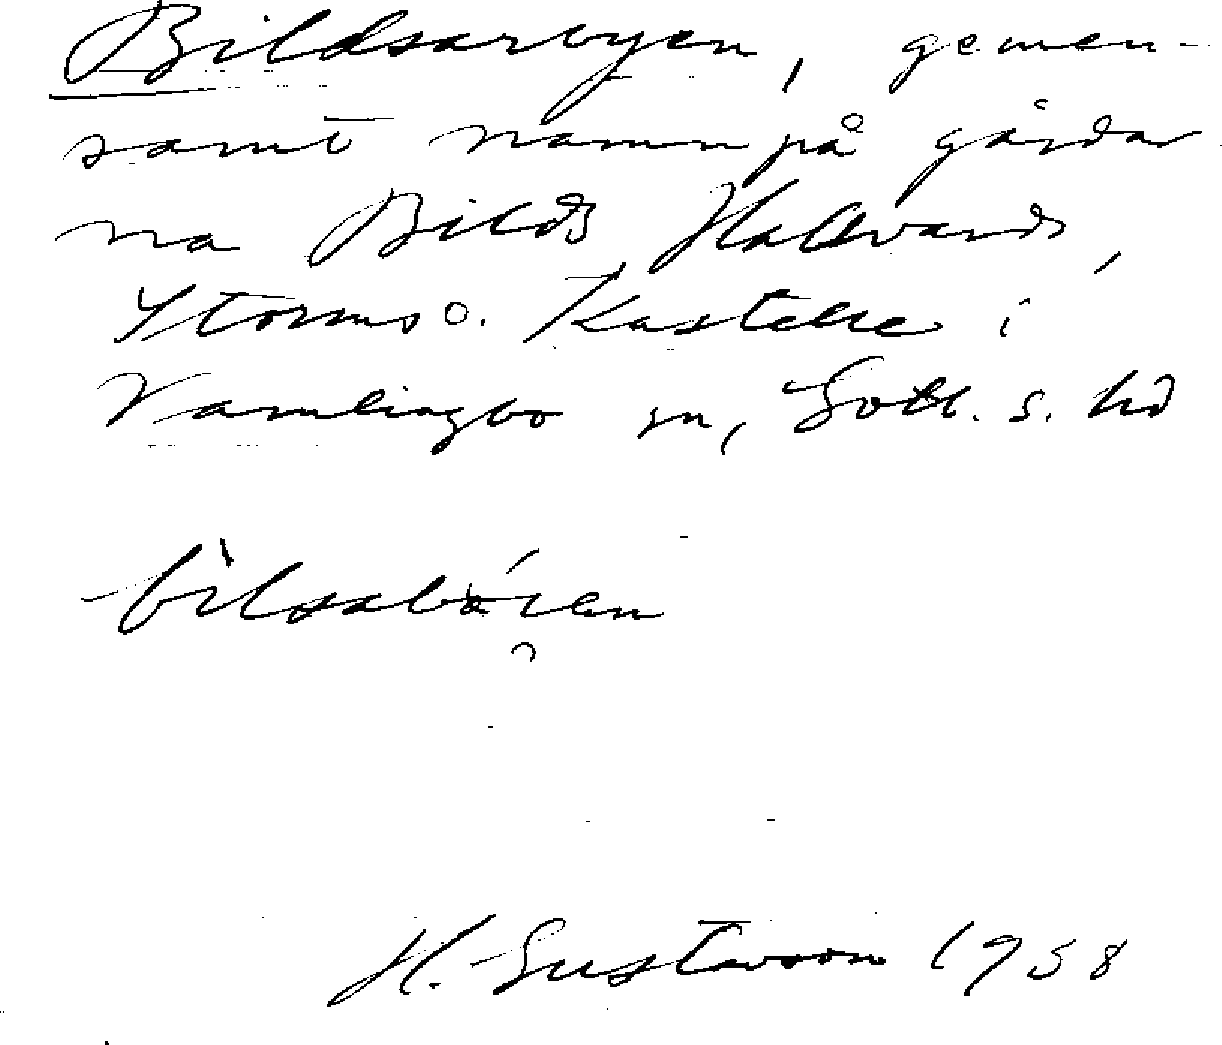 Bildsarbyen, gemen-
samt namn på gårdar
na Bilds Hallvards,
Storms o. Kastelse i
Vamlingbo sn, Gotl. s. hd
bìlsabó́ien
H. Gustavson 1958